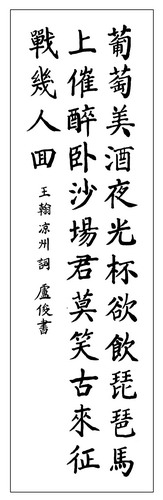 葡萄美酒夜光杯欲飲琵琶馬
上催醉卧沙場君莫笑古來征
戰幾人回 王翰凉州詞 盧俊書